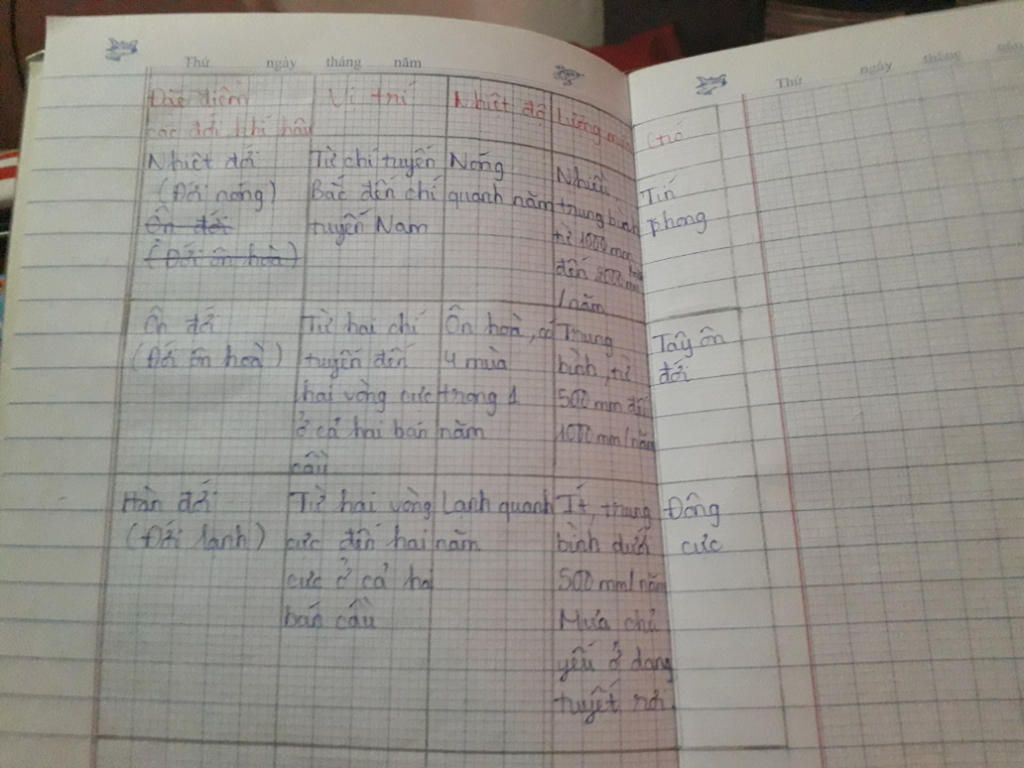 Thứ ngày tháng năm
Thứ ngày tháng năm
Đặc điểm
các đới khí hậu
Vị trí
Nhiệt độ
Lượng mưa
Gió
Nhiệt đới
(Đới nóng)
Ôn đới
(Đới ôn hoà)
Từ chí tuyến
Bắc đến chí
tuyến Nam
Nóng
quanh năm
Nhiều,
trung bình
từ 1000 mm
đến 2000 mm
/năm
Tín
phong
Ôn đới
(Đới ôn hoà)
Từ hai chí
tuyến đến
hai vòng cực
ở cả hai bán
cầu
Ôn hoà, có
4 mùa
trong 1
năm
Trung
bình, từ
500 mm đến
1000 mm/năm
Tây ôn
đới
Hàn đới
(Đới lạnh)
Từ hai vòng
cực đến hai
cực ở cả ha
bán cầu
Lạnh quanh
năm
Ít, trung
bình dưới
500 mm/năm
Mưa chủ
yếu ở dạng
tuyết rơi
Đông
cực